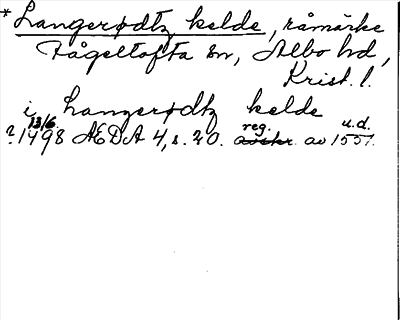 *Langerødtz kelde, råmärke
Fågeltofta sn, Albo hd,
Krist. l.
i Langerødtz kelde
13/6 reg. u.d.
?1498 ÆDA 4, s. 20. avskr. av 1551.